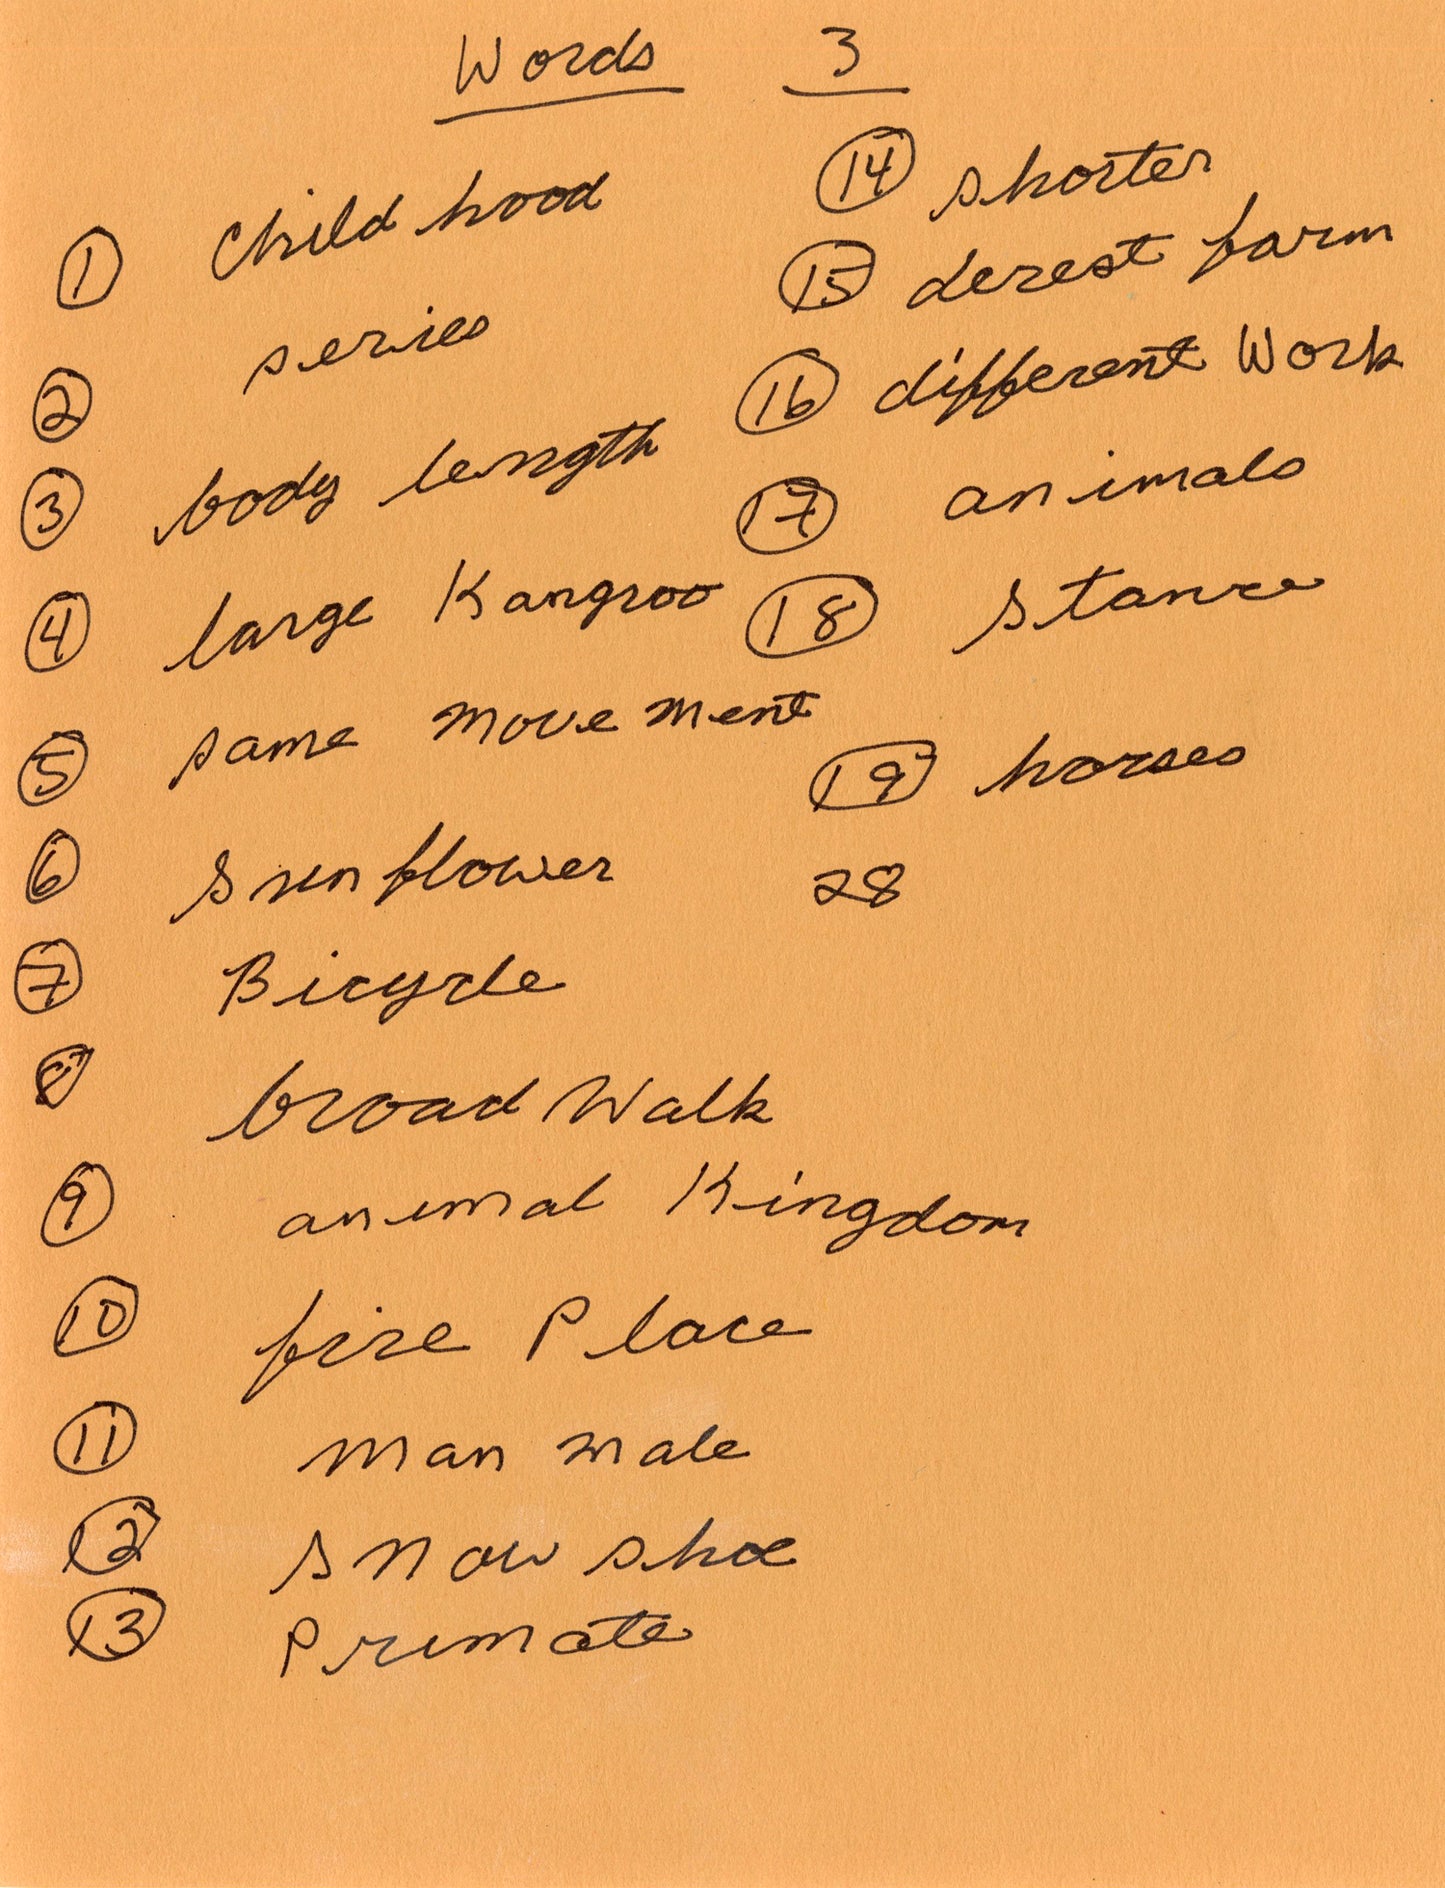 Words 3
1 Child hood
2 series
3 body length
4 large Kangroo
5 same movement
6 sunflower
7 Bicycle
8 broad Walk
9 animal Kingdom
10 fire Place
11 man male
12 snow shoe
13 Primate
14 shorter
15 derest farm
16 different Work
17 animals
18 stance
19 horses
28